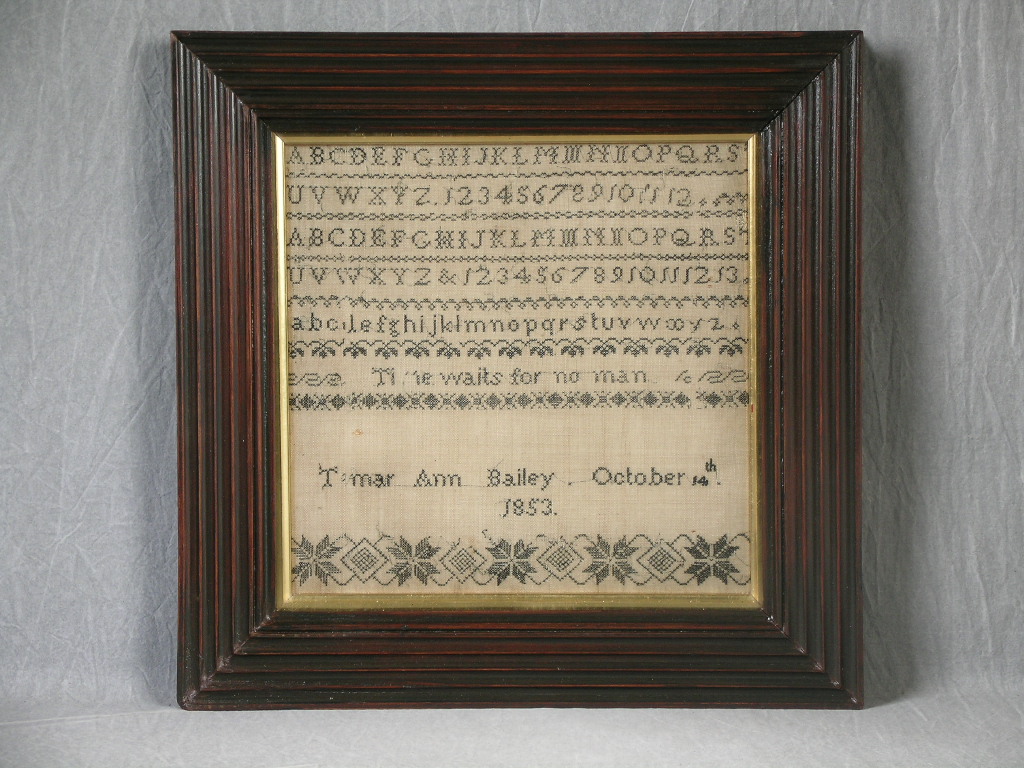 ABCDEFGHIJKLMMNNOPQRST
UVWXYZ.123456789101112
ABCDEFGHIJKLMMNNOPQRST
UVWXYZ&12345678910111213.
abcdefghijklmnopqrstuvwxyz.
Time waits for no man
Tamar Ann Bailey. October 14th.
1853.